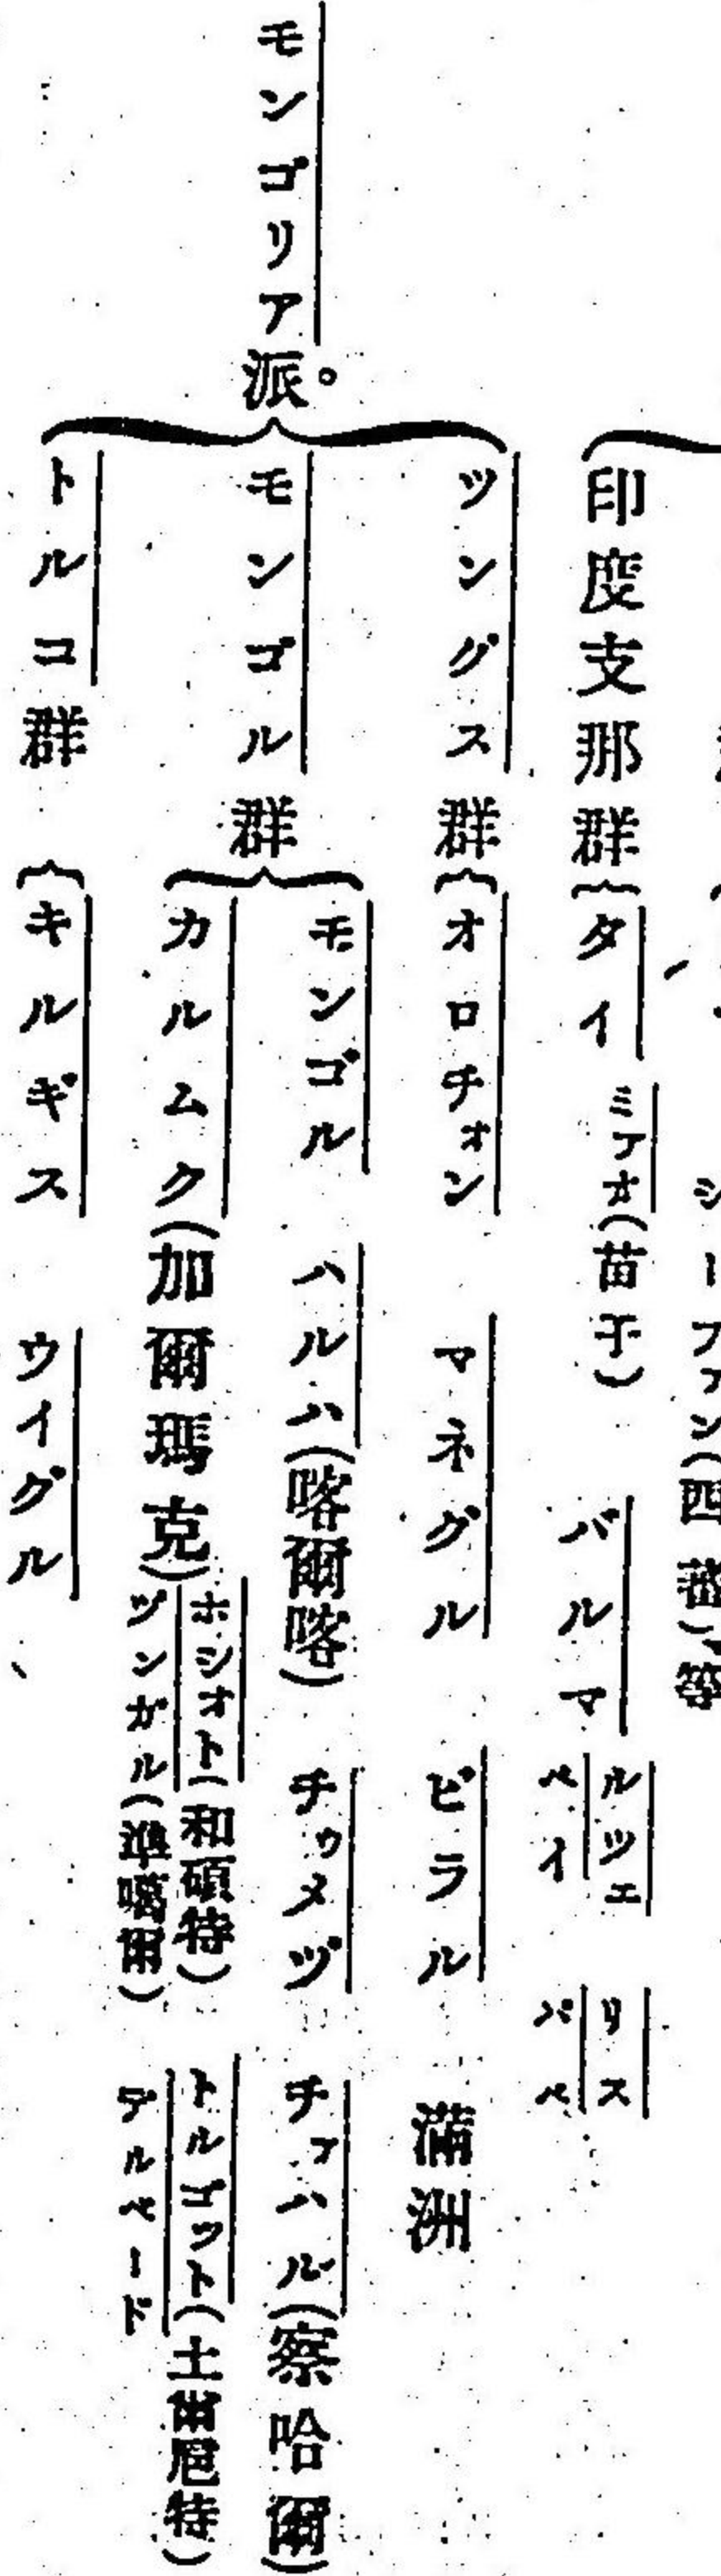 シーファン(四蕃)、等
印度支那群
タイ
ミアオ(苗子)
バルマ
ルツェ
ペイ
リス
パペ
モンゴリア派。
ツングス群
オロチォン
マネグル
ビラル
滿洲
モンゴル群
モンゴル
ハルハ(喀爾喀)
チゥメヅ
チァハル(察哈爾)
カルムク(加爾瑪克)
ホシオト(和碩特)
ヅンガル(準噶爾)
トルゴット(土爾扈特)
デルベード
トルコ群
キルギス
ウイグル